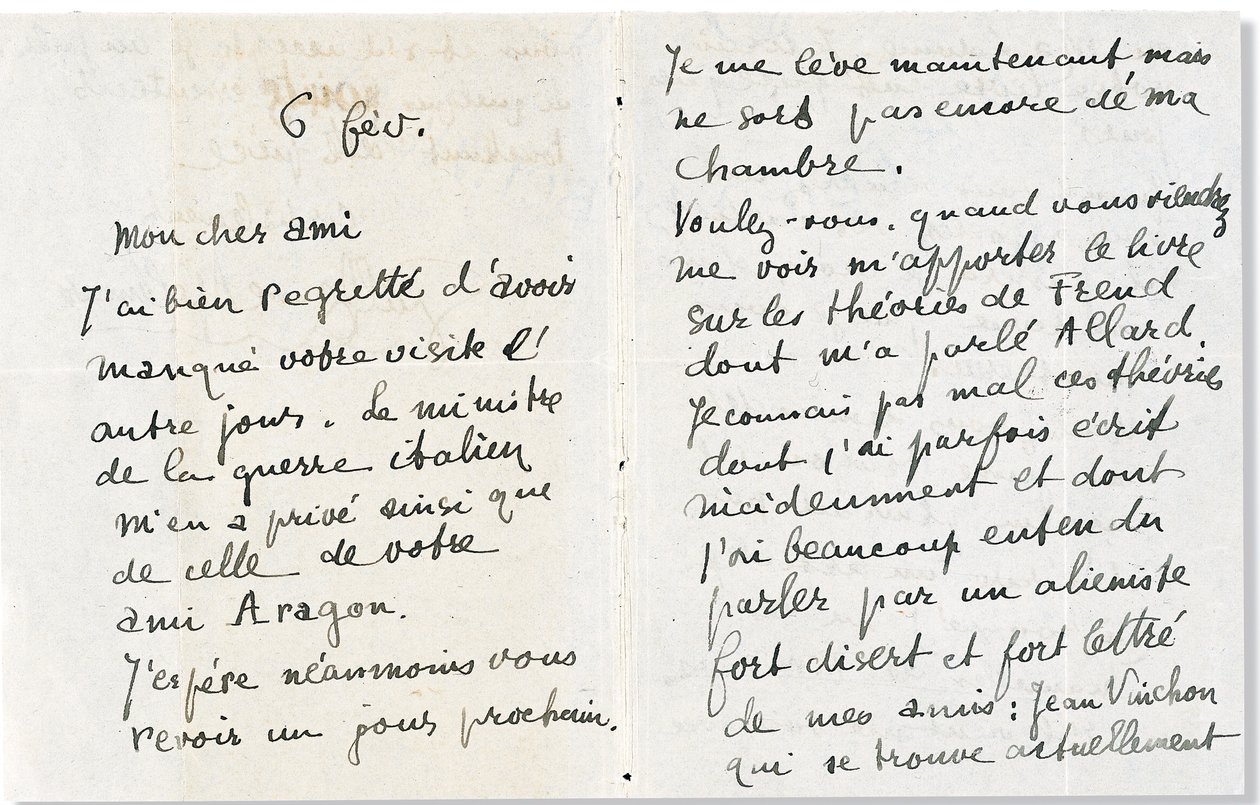 6 fév.
Mon cher ami
J'ai bien regretté d'avoir
manqué votre visite l'
autre jour. Le ministre
de la guerre italien
m'en a privé ainsi que
de celle de votre
ami Aragon.
J'espére néanmoins vous
revoir un jour prochain.
Je me lève maintenant mais
ne sors pas encore dé ma
chambre.
Voulez-vous, quand vous viendrez
me voir m'apporter le livre
sur les théories de Freud
dont m'a parlé Allard.
Je connais pas mal ces théories
dont j'ai parfois écrit
incidemment et dont
j'ai beaucoup entendu
parler par un alieniste
fort disert et fort lettré
de mes amis : Jean Vinchon
qui se trouve actuellement